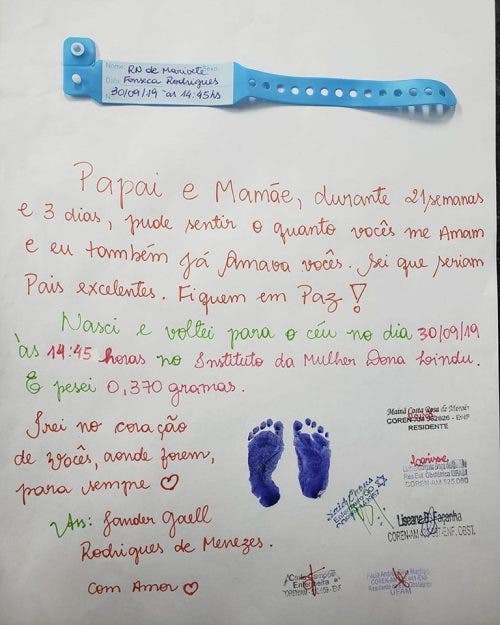 Nome: RN de Marivete Sexo
Data Fonseca Rodrigues
Nº 30/09/19 às 14:45hs
Papai e Mamãe, durante 21 semanas
e 3 dias, pude sentir o quanto vocês me Amam
e eu também já Amava vocês. Sei que seriam
Pais excelentes. Fiquem em Paz!
Nasci e voltei para o céu no dia 30/09/19
às 14:45 horas no Instituto da Mulher Dona Lindu.
E pesei 0,370 gramas.
Irei no coração
de vocês, aonde forem,
para sempre
Ass: Sander Gaell
Rodrigues de Menezes.
com Amor
Mainá Costa Rosa de
COREN-AM ENF
RESIDENTE
Res Enf. Obstétrica UFAM
COREN-AM 525.080
Liseane B. Façanha
COREN-AM ENF. OBST.
Enfermeira
COREN-AM ENF
UFAM